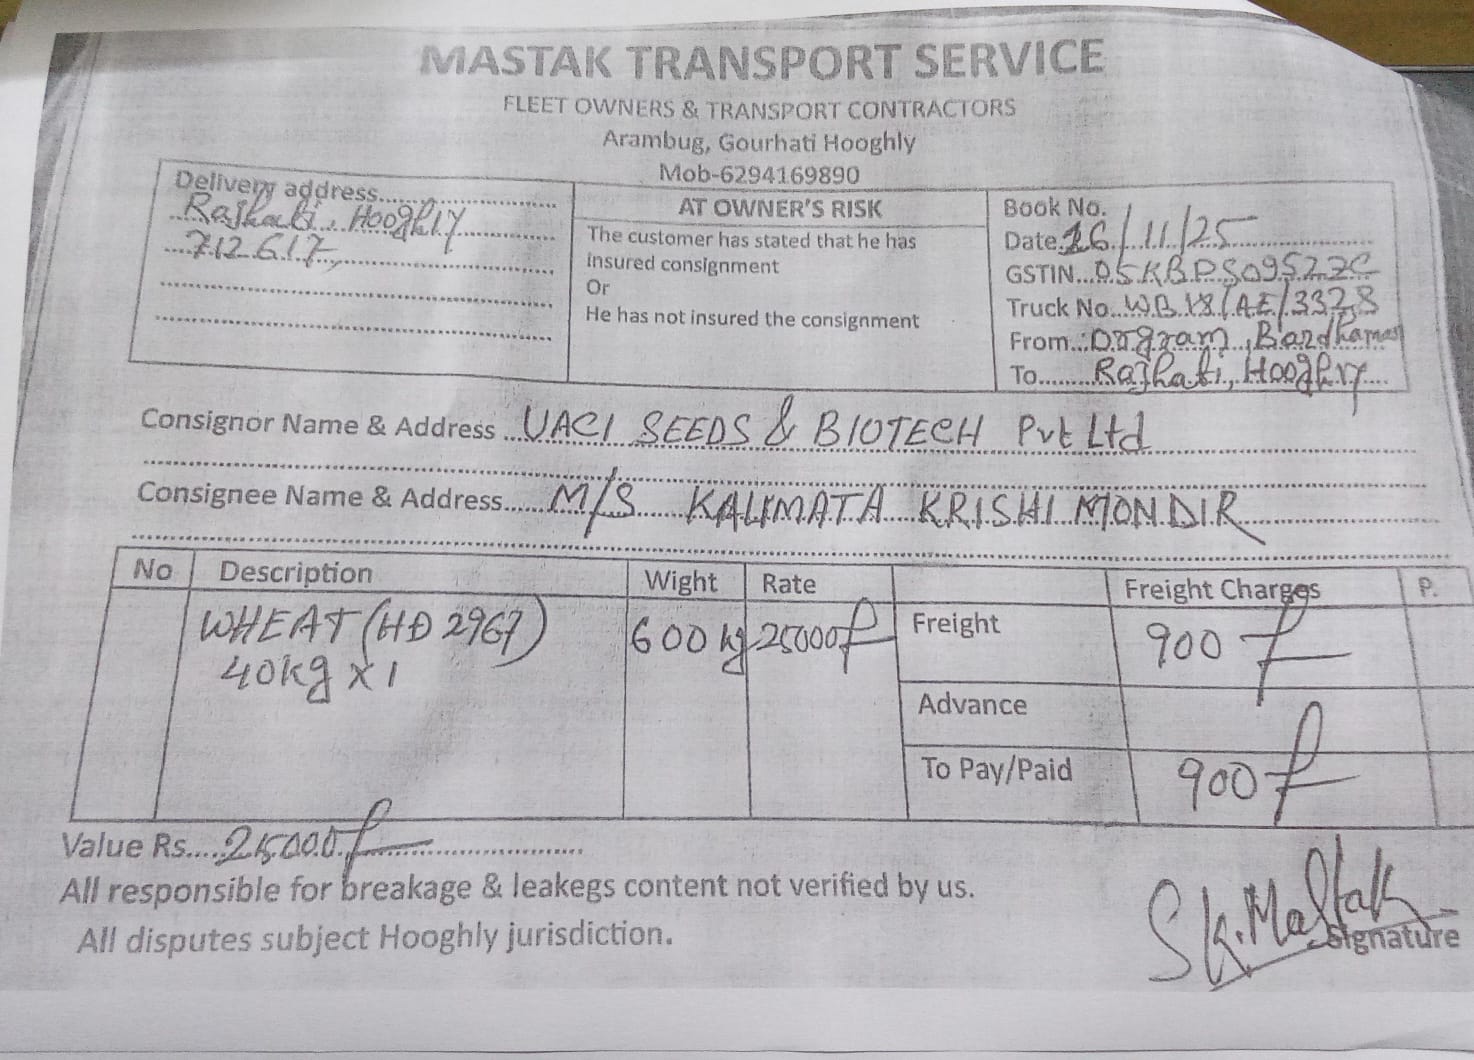 MASTAK TRANSPORT SERVICE
FLEET OWNERS & TRANSPORT CONTRACTORS
Arambug, Gourhati Hooghly
Mob-6294169890
Delivery address......
Rajhati, Hooghly
712617,
AT OWNER'S RISK
The customer has stated that he has
insured consignment
Or
He has not insured the consignment
Book No.
Date. 26/11/25
GSTIN...
Truck No..
From... Bardhaman
To......... Rajhati, Hooghly
Consignor Name & Address ... UACI SEEDS & BIOTECH Pvt Ltd
Consignee Name & Address...... M/S KALIMATA KRISHI MONDIR
No Description Wight Rate Freight Charges P.
WHEAT (HD 2967) 600 kg 25000/- Freight 900/-
40kg x 1
Advance
To Pay/Paid 900/-
Value Rs.... 25000/-
All responsible for breakage & leakegs content not verified by us.
All disputes subject Hooghly jurisdiction.
Sk. Mastak
Signature